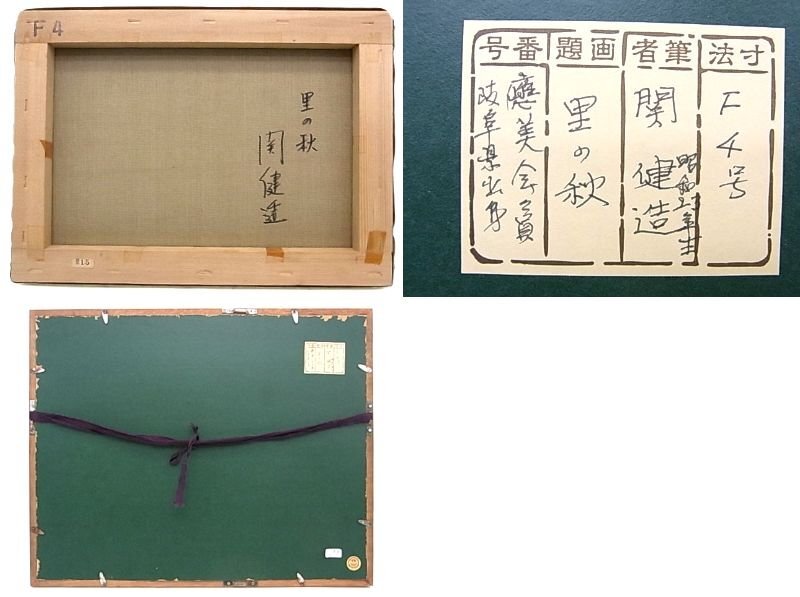 F4
里の秋
関健造
里15
寸法
筆者
画題
番号
F4号
関健造
昭和23年生
里の秋
應美会会員
岐阜県出身